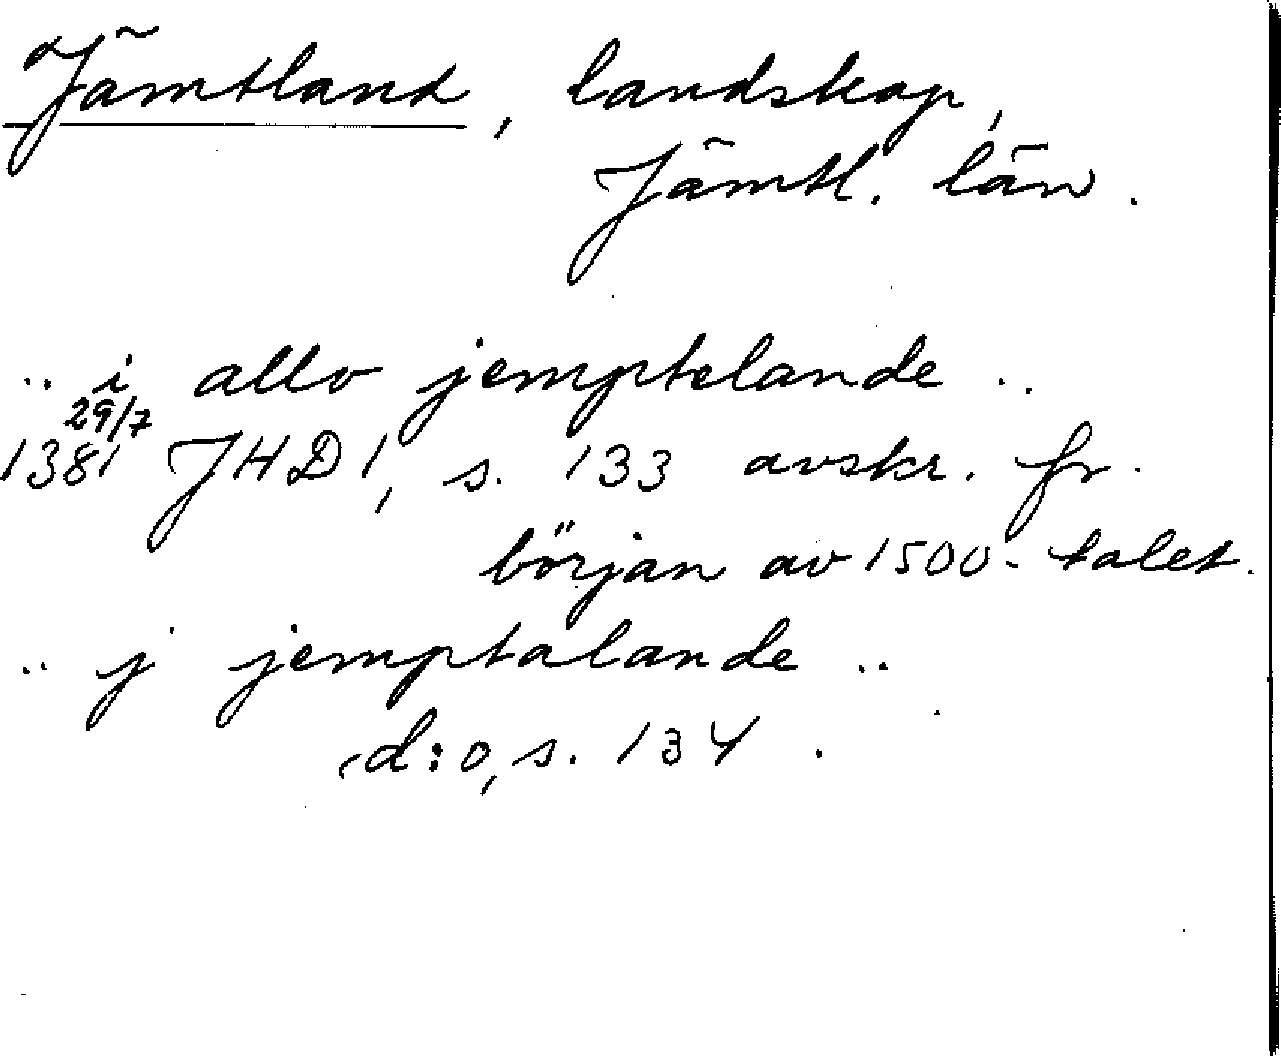 Jämtland, landskap,
Jämtl. län.
.. i allo jemptelande ..
29/7
1381 JHD 1, s. 133 avskr. fr.
början av 1500-talet.
.. j jemptalande ..
d:o, s. 134.